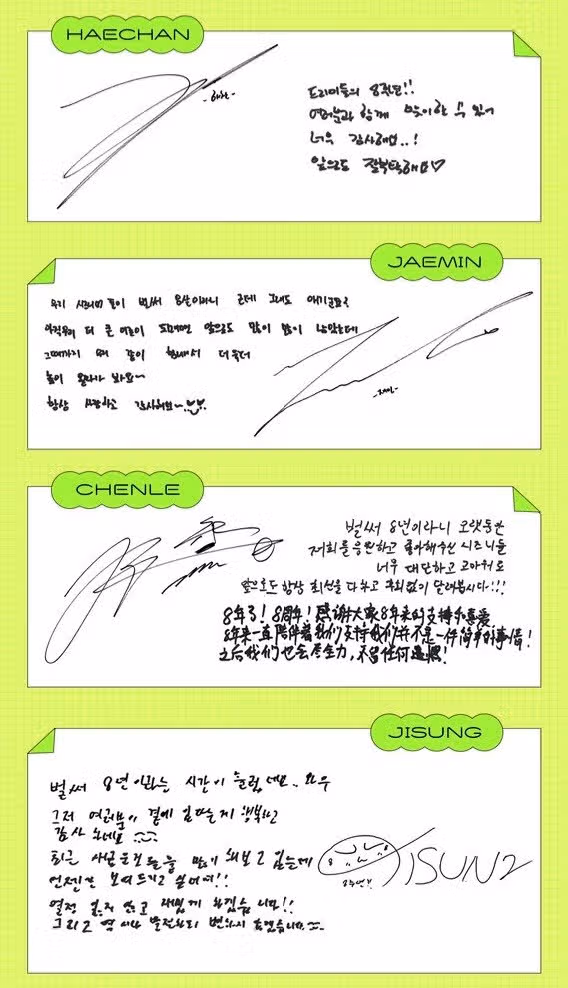 HAECHAN
드리미들의 8주년!!
여러분과 함께 맞이할 수 있어
너무 감사해요..!
앞으로도 잘부탁해요♡
-해찬-
JAEMIN
우리 시즈니들이 벌써 8살이라니 근데 그래도 애기같다
많이 많이 남았는데
그때까지 우리 같이 함께해서 더욱더
높이 올라가 봐요~
항상 사랑하고 감사해요~
-재민-
CHENLE
벌써 8년이라니 오랫동안
저희를 응원하고 좋아해주신 시즈니들
너무 대단하고 고마워요
앞으로도 항상 최선을 다하고 후회없이 달려봅시다!!!
8年了! 8周年! 感谢大家8年来的支持和喜爱,
8年来一直陪伴着我们支持我们并不是一件简单的事情!
之后我们也会尽全力,不留任何遗憾!
JISUNG
벌써 8년이라는 시간이 흘렀네요..
그저 여러분이 곁에 있다는게 행복하고
감사하네요
최근 많이 해보고 있는데
언젠간 보여드리고 싶어여!!
열정 잃지 않고 재밌게 하겠습니다!!
그리고 역시나
JISUNG